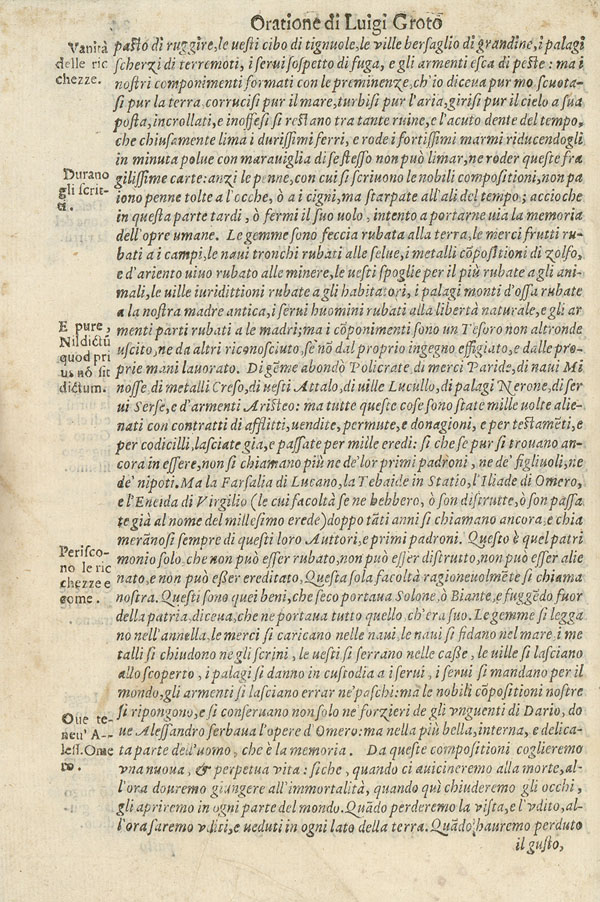 Oratione di Luigi Groto
Vanità
delle ric
chezze.
pasto di ruggire, le uesti cibo di tignuole, le ville bersaglio di grandine, i palagi
scherzi di terremoti, i serui sospetto di fuga, e gli armenti esca di peste: ma i
nostri componimenti formati con le preminenze, ch'io diceua pur mo scuota-
si pur la terra corrucisi pur il mare, turbisi pur l'aria, girisi pur il cielo a sua
posta, incrollati, e inoffesi si restano tra tante ruine, e l'acuto dente del tempo,
che chiusamente lima i durissimi ferri, e rode i fortissimi marmi riducendogli
in minuta polue con marauiglia di se stesso non può limar, ne roder queste fra
Durano
gli scrit-
ti.
gilissime carte: anzi le penne, con cui si scriuono le nobili compositioni, non pa
iono penne tolte a l'ocche, ò a i cigni, ma starpate all'ali del tempo; accioche
in questa parte tardi, ò fermi il suo uolo, intento a portarne uia la memoria
dell'opre umane. Le gemme sono feccia rubata alla terra, le merci frutti ru-
bati a i campi, le naui tronchi rubati alle selue, i metalli cõpositioni di zolfo,
e d'ariento uiuo rubato alle minere, le uesti spoglie per il più rubate a gli ani-
mali, le uille iuridittioni rubate a gli habitatori, i palagi monti d'ossa rubate
a la nostra madre antica, i serui huomini rubati alla libertà naturale, e gli ar
E pure,
Nil dictũ
quod pri
us nõ sit
dictum.
menti parti rubati a le madri; ma i cõponimenti sono un Tesoro non altronde
uscito, ne da altri riconosciuto, se nõ dal proprio ingegno effigiato, e dalle pro-
prie mani lauorato. Di gẽme abondò Policrate, di merci Paride, di naui Mi
nosse, di metalli Creso, di uesti Attalo, di uille Lucullo, di palagi Nerone, di ser
ui Serse, e d'armenti Aristeo: ma tutte queste cose sono state mille uolte alie-
nati con contratti di affitti, uendite, permute, e donagioni, e per testamẽti, e
per codicilli, lasciate gia, e passate per mille eredi: si che se pur si trouano an-
cora in essere, non si chiamano più ne de' lor primi padroni, ne de' figliuoli, ne
de' nipoti. Ma la Farsalia di Lucano, la Tebaide in Statio, l'Iliade di Omero,
e l'Eneida di Virgilio (le cui facoltà se ne bebbero, ò son distrutte, ò son passa
te già al nome del millesimo erede) doppo tãti anni si chiamano ancora, e chia
meranosi sempre di questi loro Auttori, e primi padroni. Questo è quel patri
Perisco-
no le ric
chezze e
come.
monio solo che non può esser rubato, non può esser distrutto, non può esser alie
nato, e non può eßer ereditato, Questa sola facoltà ragioneuolmẽte si chiama
nostra. Questi sono quei beni, che seco portaua Solone, ò Biante, e fuggẽdo fuor
della patria diceua, che ne portaua tutto quello ch'era suo. Le gemme si lega
no nell'annella, le merci si caricano nelle naui, le naui si fidano nel mare, i me
talli si chiudono ne gli scrini, le uesti si serrano nelle caße, le uille si lasciano
allo scoperto, i palagi si danno in custodia a i serui, i serui si mandano per il
mondo, gli armenti si lasciano errar ne' paschi: ma le nobili cõpositioni nostre
Oue te-
neu' A-
less. Ome
ro.
si ripongono, e si conseruano non solo ne' forzieri de gli vnguenti di Dario, do
ue Alessandro serbaua l'opere d'Omero: ma nella più bella, interna, e delica-
ta parte dell'uomo, che è la memoria. Da queste compositioni coglieremo
vna nuoua, & perpetua vita: siche, quando ci auicineremo alla morte, al-
l'ora douremo giungere all'immortalità, quando quì chiuderemo gli occhi,
gli apriremo in ogni parte del mondo. Quãdo perderemo la vista, e l'vdito, al-
l'ora saremo vditi, e ueduti in ogni lato della terra. Quãdo hauremo perduto
il gusto,